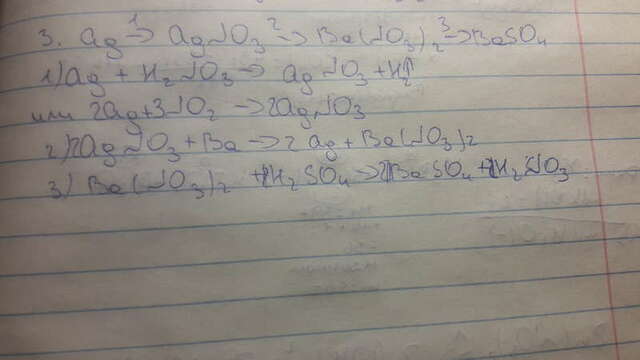 3. Ag →¹ AgNO₃ →² Ba(NO₃)₂ →³ BaSO₄
1) Ag + H₂NO₃ → AgNO₃ + H₂↑
или 2Ag+3NO₂ → 2AgNO₃
2) 2AgNO₃ + Ba → 2Ag + Ba(NO₃)₂
3) Ba(NO₃)₂ + H₂SO₄ → BaSO₄ + H₂NO₃